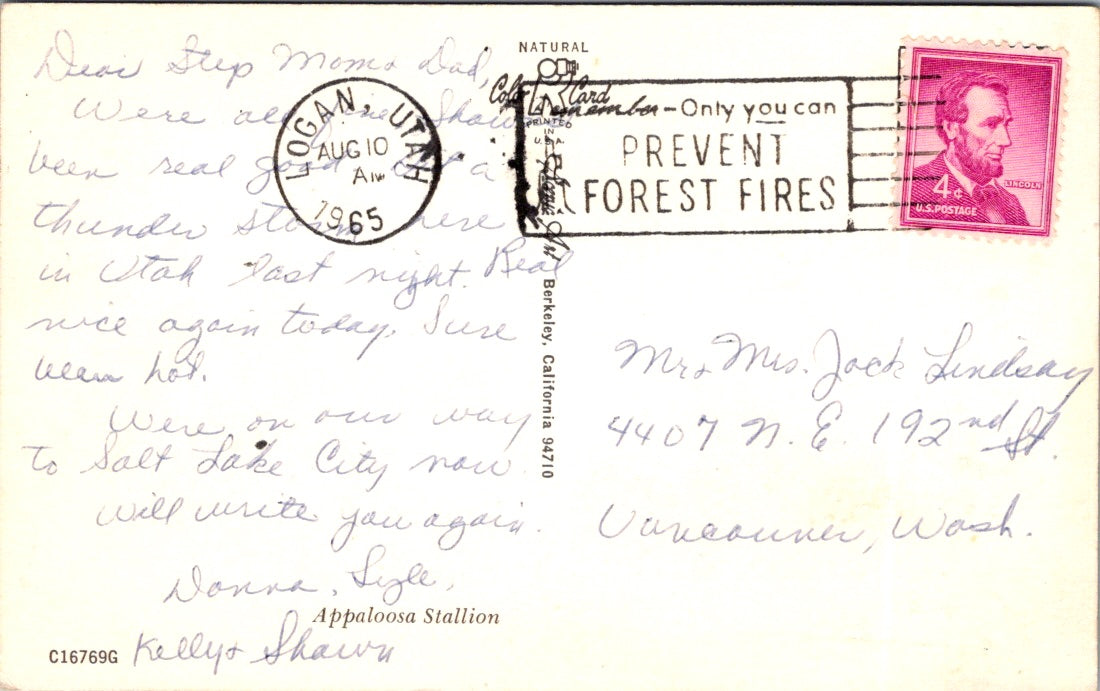 Dear Step Mom & Dad,
Were all fine. Shawn
been real good. a
thunder storm here
in Utah last night. Real
nice again today. Sure
been hot.
Were on our way
to Salt Lake City now
will write you again.
Donna, Lyle,
Kelly & Shawn
Appaloosa Stallion
C16769G
NATURAL
Color Card
PRINTED
IN
U.S.A.
Berkeley, California 94710
LOGAN, UTAH
AUG 10
AM
1965
Remember - Only you can
PREVENT
FOREST FIRES
4¢
LINCOLN
U.S. POSTAGE
Mr & Mrs. Jack Lindsay
4407 N. E. 192nd St.
Vancouver, Wash.